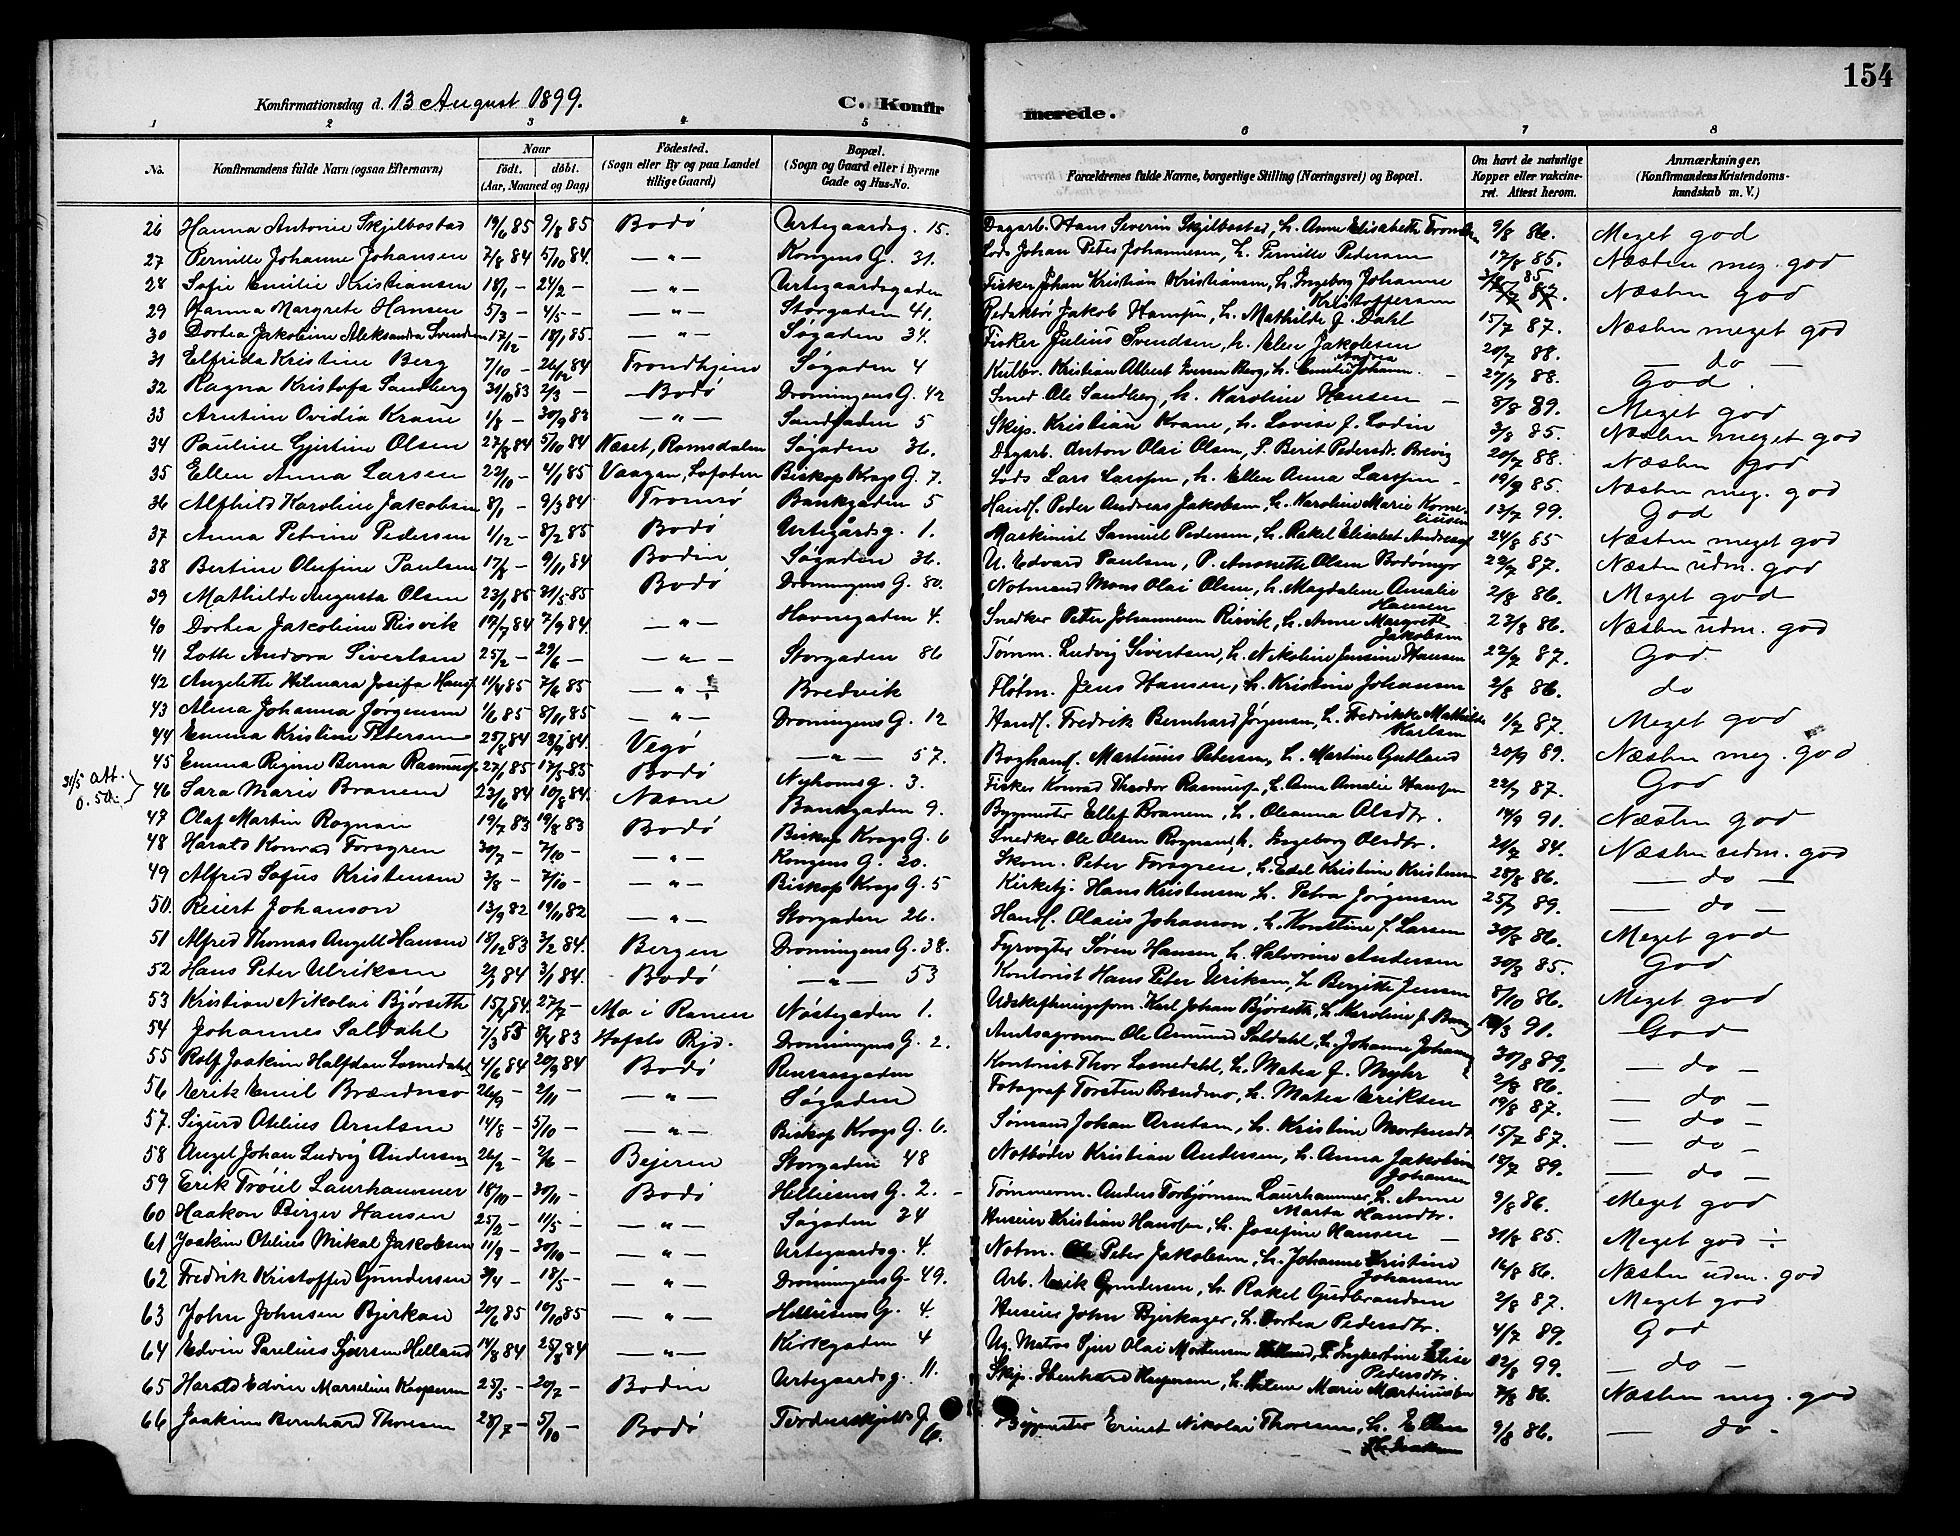 154
Konfirmationsdag d. 13 August 1899. C. Konfirmerede.
1 2 3 4 5 6 7 8
No. Konfirmandens fulde Navn (ogsaa Efternavn) Naar födt. döbt. (Aar, Maaned og Dag) Födested. (Sogn eller By og paa Landet tillige Gaard) Bopæl. (Sogn og Gaard eller i Byerne Gade og Hus-No. Forældrenes fulde Navne, borgerlige Stilling (Næringsvei) og Bopæl. Om havt de naturlige Kopper eller vakcineret. Attest herom. Anmærkninger. (Konfirmandens Kristendomskundskab m. V.)
26 Hanna Antonie Skjelbostad 19/6 85 9/8 85 Bodø Urtegaardsg. 15. Dagarb. Hans Severin Skjelbostad, h. Anne Elisabeth 9/8 86. Meget god
27 Pernille Johanne Johansen 7/8 84 5/10 84. — " — Kongens G. 31. Lods Johan Peter Johannesen, h. Pernille Pedersen 17/8 85. Næsten meg. god
28 Sofie Emilie Kristiansen 18/1 — 24/2 — — " — Urtegaardsgaden Fisker Johan Kristian Kristiansen, h. Ingeborg Johanne Kristoffersen 85 Næsten god
29 Hanna Margrete Hansen 5/3 — 4/5 — — " — Storgaden 41. Redaktør Jakob Hansen, h. Mathilde J. Dahl 15/7 87. Næsten meget god
30 Dortea Jakobine Aleksandra Svendsen 17/12 — 18/1 85. — " — Søgaden 34. Fisker Julius Svendsen, h. Else Jakobsen 20/7 88. — do —
31 Elfrida Kristine Berg 7/10 — 26/12 84 Trondhjem Søgaden 4 Kristian Albert Iversen Berg, h. Emilie Andrea Johann. — 27/7 88. God.
32 Ragna Kristofa Sandberg 31/10 83 2/3 — Bodø Dronningens G. 42 Smed Ole Sandberg, h. Karoline Hansen — 8/8 89. Meget god
33 Arntine Ovidia Krane 1/8 — 30/9 83 — " — Sandgaden 5 Skip. Kristian Krane, h. Lovise J. Lodin 3/8 85. Næsten meget god
34 Pauline Gjertine Olsen 27/8 84 5/10 84 Næset, Romsdalen Søgaden 36. Dagarb. Anton Olai Olsen, P. Berit Pedersdr. Brevig 20/7 88. Næsten god
35 Ellen Anna Larsen 22/10 — 4/1 85 Vaagan, Lofoten Biskop Krogs G. 7. Lods Lars Larssen, h. Ellen Anna Larssen — 19/9 85. Næsten meg. god
36 Alfhild Karoline Jakobsen 8/1 — 9/3 84 Tromsø Bankgaden 5 Handl. Peder Andreas Jakobsen, h. Karoline Marie Korneliussen 13/7 99. God
37 Anna Petrine Pedersen 1/12 — 8/2 85 Bodø Urtegårdsg. 1. Maskinist Samuel Pedersen, h. Rakel Elisabet Andreas 24/8 85 Næsten meget god
38 Bertine Olufine Paulsen 17/8 — 9/11 84 Bodin Søgaden 36. U. Edvard Paulsen, P. Anonette Olsen Bodømyr 29/7 87. Næsten udm. god
39 Mathilde Augusta Olsen 23/1 85 31/5 85 Bodø Dronningens G. 80. Notmand Mons Olai Olsen, h. Magdalene Amalie Hansen 2/8 86. Meget god
40 Dortea Jakobine Risvik 17/7 84 7/9 84. — " — Havnegaden 4. Snedker Peter Johannesen Risvik, h. Anne Margrete Jakobsen 23/8 86. Næsten udm. god
41 Lotte Andora Sivertsen 25/2 — 29/6 — — " — Storgaden 86 Tømm. Ludvig Sivertsen, h. Nikoline Jensine Hansen 22/7 87. God.
42 Angelette Hilmara Josefa Hans 11/4 85 7/6 85 — " — Bredvik Fløtm. Jens Hansen, h. Kristine Johansen 2/8 86. do
43 Alma Johanna Jørgensen 1/6 85 8/11 85 — " — Dronningens G. 12 Handl. Fredrik Bernhard Jørgensen, h. Fredrikke Mathilde Karlsen 1/7 87. Meget god
44 Emma Kristine Petersen 25/8 84 28/9 84. Vegø — " — 57. Boghandl. Martinius Petersen, h. Martine Gutland 20/9 89. Næsten meg. god
45 Emma Regine Berna Rasmus 27/6 85 17/5 85 Bodø Nyholms G. 3. Fisker Konrad Theodor Rasmus, h. Anna Amalie Hansen 22/7 87. God
31/5 att. 0.50.
46 Sara Marie Branem 23/6 84 10/8 84. Næsne Bankgaden 9. Bygmester Ellef Branem, h. Oleanna Olsdtr. 14/9 91. Næsten god
47 Olaf Martin Rognan 19/7 83 19/8 83 Bodø Biskop Krogs G. 6 Snedker Ole Olsen Rognan, h. Ingeborg Olsdtr. 21/7 84. Næsten udm. god
48 Harald Konrad Forsgren 30/7 — 7/10 — — " — Kongens G. 20. Skom. Peter Forsgren, h. Edel Kristine Kristensen 28/8 86. — do —
49 Alfred Sofus Kristensen 3/8 — 7/10 — — " — Biskop Krogs G. 5 Kirketj. Hans Kristensen, h. Petra Jørgensen 25/7 89. — do —
50. Reiert Johanson 13/9 82 19/11 82 — " — Storgaden 26. Handl. Olaus Johanson, h. Konstine J. Larsen 30/8 86. Meget god
51 Alfred Thomas Angell Hansen 18/12 83 3/2 84. Bergen Dronningens G. 38. Fyrvogter Søren Hansen, h. Halvorine Andersen 30/8 85. God
52 Hans Peter Ulriksen 84 3/1 84. Bodø — " — 53 Kontorist Hans Peter Ulriksen, h. Bergitte Jensen 8/10 86. Meget god
53 Kristian Nikolai Bjørseth 84. 27/7 — Mo i Ranen Nøstegaden 1. Udskiftningsform. Karl Johan Bjørseth, h. Karoline J. 91. God
54 Johannes Saldahl 7/3 83 8/4 83 Hafslo Bjd. Dronningens G. 2. Amtsagronom Ole Amund Saldahl, h. Johanne 30/8 89. — do —
55 Rolf Joakim Halfdan Losnedahl 4/6 84 20/9 84 Bodø Rensaasgaden Kontorist Thor Losnedahl, h. Matea J. Myhr 2/8 86. — do —
56 Erik Emil Brændmo 26/9 — 2/11 — — " — Søgaden Fotograf Torsten Brændmo, h. Matea Eriksen 19/8 87. — do —
57. Sigurd Otelius Arntsen 14/8 — 5/10 — — " — Biskop Krogs G. 6. Sømand Johan Arntsen, h. Kristine Mortensdr. 15/7 87. — do —
58 Angel Johan Ludvig Andersen 26/2 — 2/6 — Bejeren Storgaden 48 Notbøder Kristian Andersen, h. Anna Jakobine Johansen 18/7 89. — do —
59 Erik Trøiel Laurhammer 18/10 — 30/11 — Bodø Helliesens G. 2. — Tømmerm. Anders Torbjørnsen Laurhammer, h. Anne Marta Hansdtr. 9/8 86. Meget god
60 Haakon Birger Hansen 25/2 — 11/5 — — " — Søgaden 24 Huseier Kristian Hansen, h. Josefine Hansen — 31/8 85. Meget god ÷
61 Joakim Otelius Mikal Jakobsen 11/9 — 30/10 — — " — Urtegaardsg. 4. Notm. Peter Jakobsen, h. Johanne Kristine Johansen 16/8 86. Næsten udm. god
62 Fredrik Kristoffer Gundersen — 18/5 — — " — Dronningens G. 49. Arb. Erik Gundersen, h. Rakel Gudbrandsen 2/8 87. Meget god
63 John Johnsen Bjerkan 20/6 85 10/10 85 — " — Helliesens G. 4. Huseier John Bjerkager, h. Dortea Pedersdtr. 4/7 89. God
64 Edvin Parelius Sjørsen Helland 14/8 84 25/8 84 — " — Kirkgaden 4 Ug. Matros Sjur Olai Mortensen Helland, P. Ingebertine Elise Pedersdtr. 12/8 99. — do —
65 Harald Edvin Marselius Kaspersen 25/5 — 20/7 — Bodin Urtegaardsg. 11. Skip. Kaspersen, h. Helene Marie Martinusen 7/8 86. Næsten meg. god
66 Joakim Bernhard Thoresen 28/7 — 5/10 — Bodø Tordenskjolds G. 6. Bygmester Ernst Nikolai Thoresen, h. Ellen 9/8 86. — do —